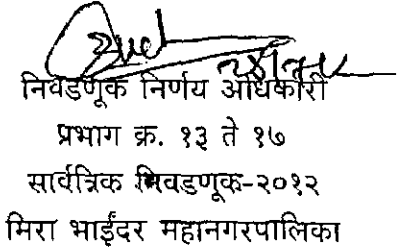 निवडणूक निर्णय अधिकारी
प्रभाग क्र. १३ ते १७
सार्वत्रिक निवडणूक-२०१२
मिरा भाईंदर महानगरपालिका